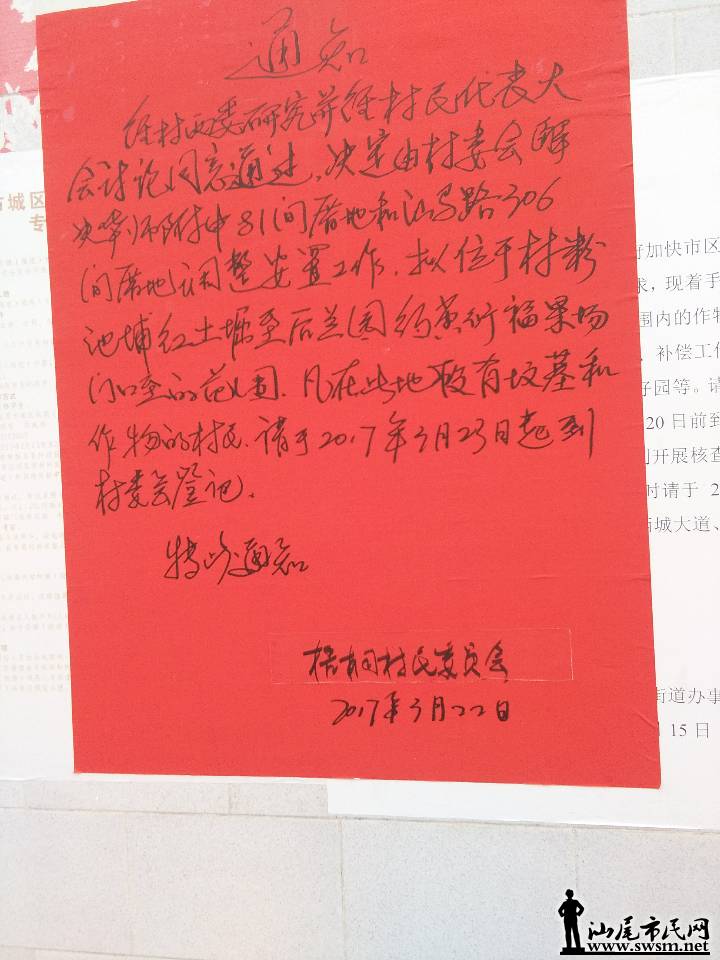 通知
经村两委研究并经村民代表大
会讨论同意通过，决定由村委会解
决华师附中81间厝地和汕马路306
间厝地调整安置工作，拟位于村粉
池埔红土堀至后兰园 福果场
门口至的范围．凡在此地段有坟墓和
作物的村民．请于2017年3月23日起到
村委会登记．
特此通知
梧桐村民委员会
2017年3月22日
市城区
专
好加快市区
求，现着手
围内的作物
、补偿工作
好园等。请
20日前到
开展核查
时请于 2
西城大道、
街道办事
月15日
汕尾市民网
www.swsm.net